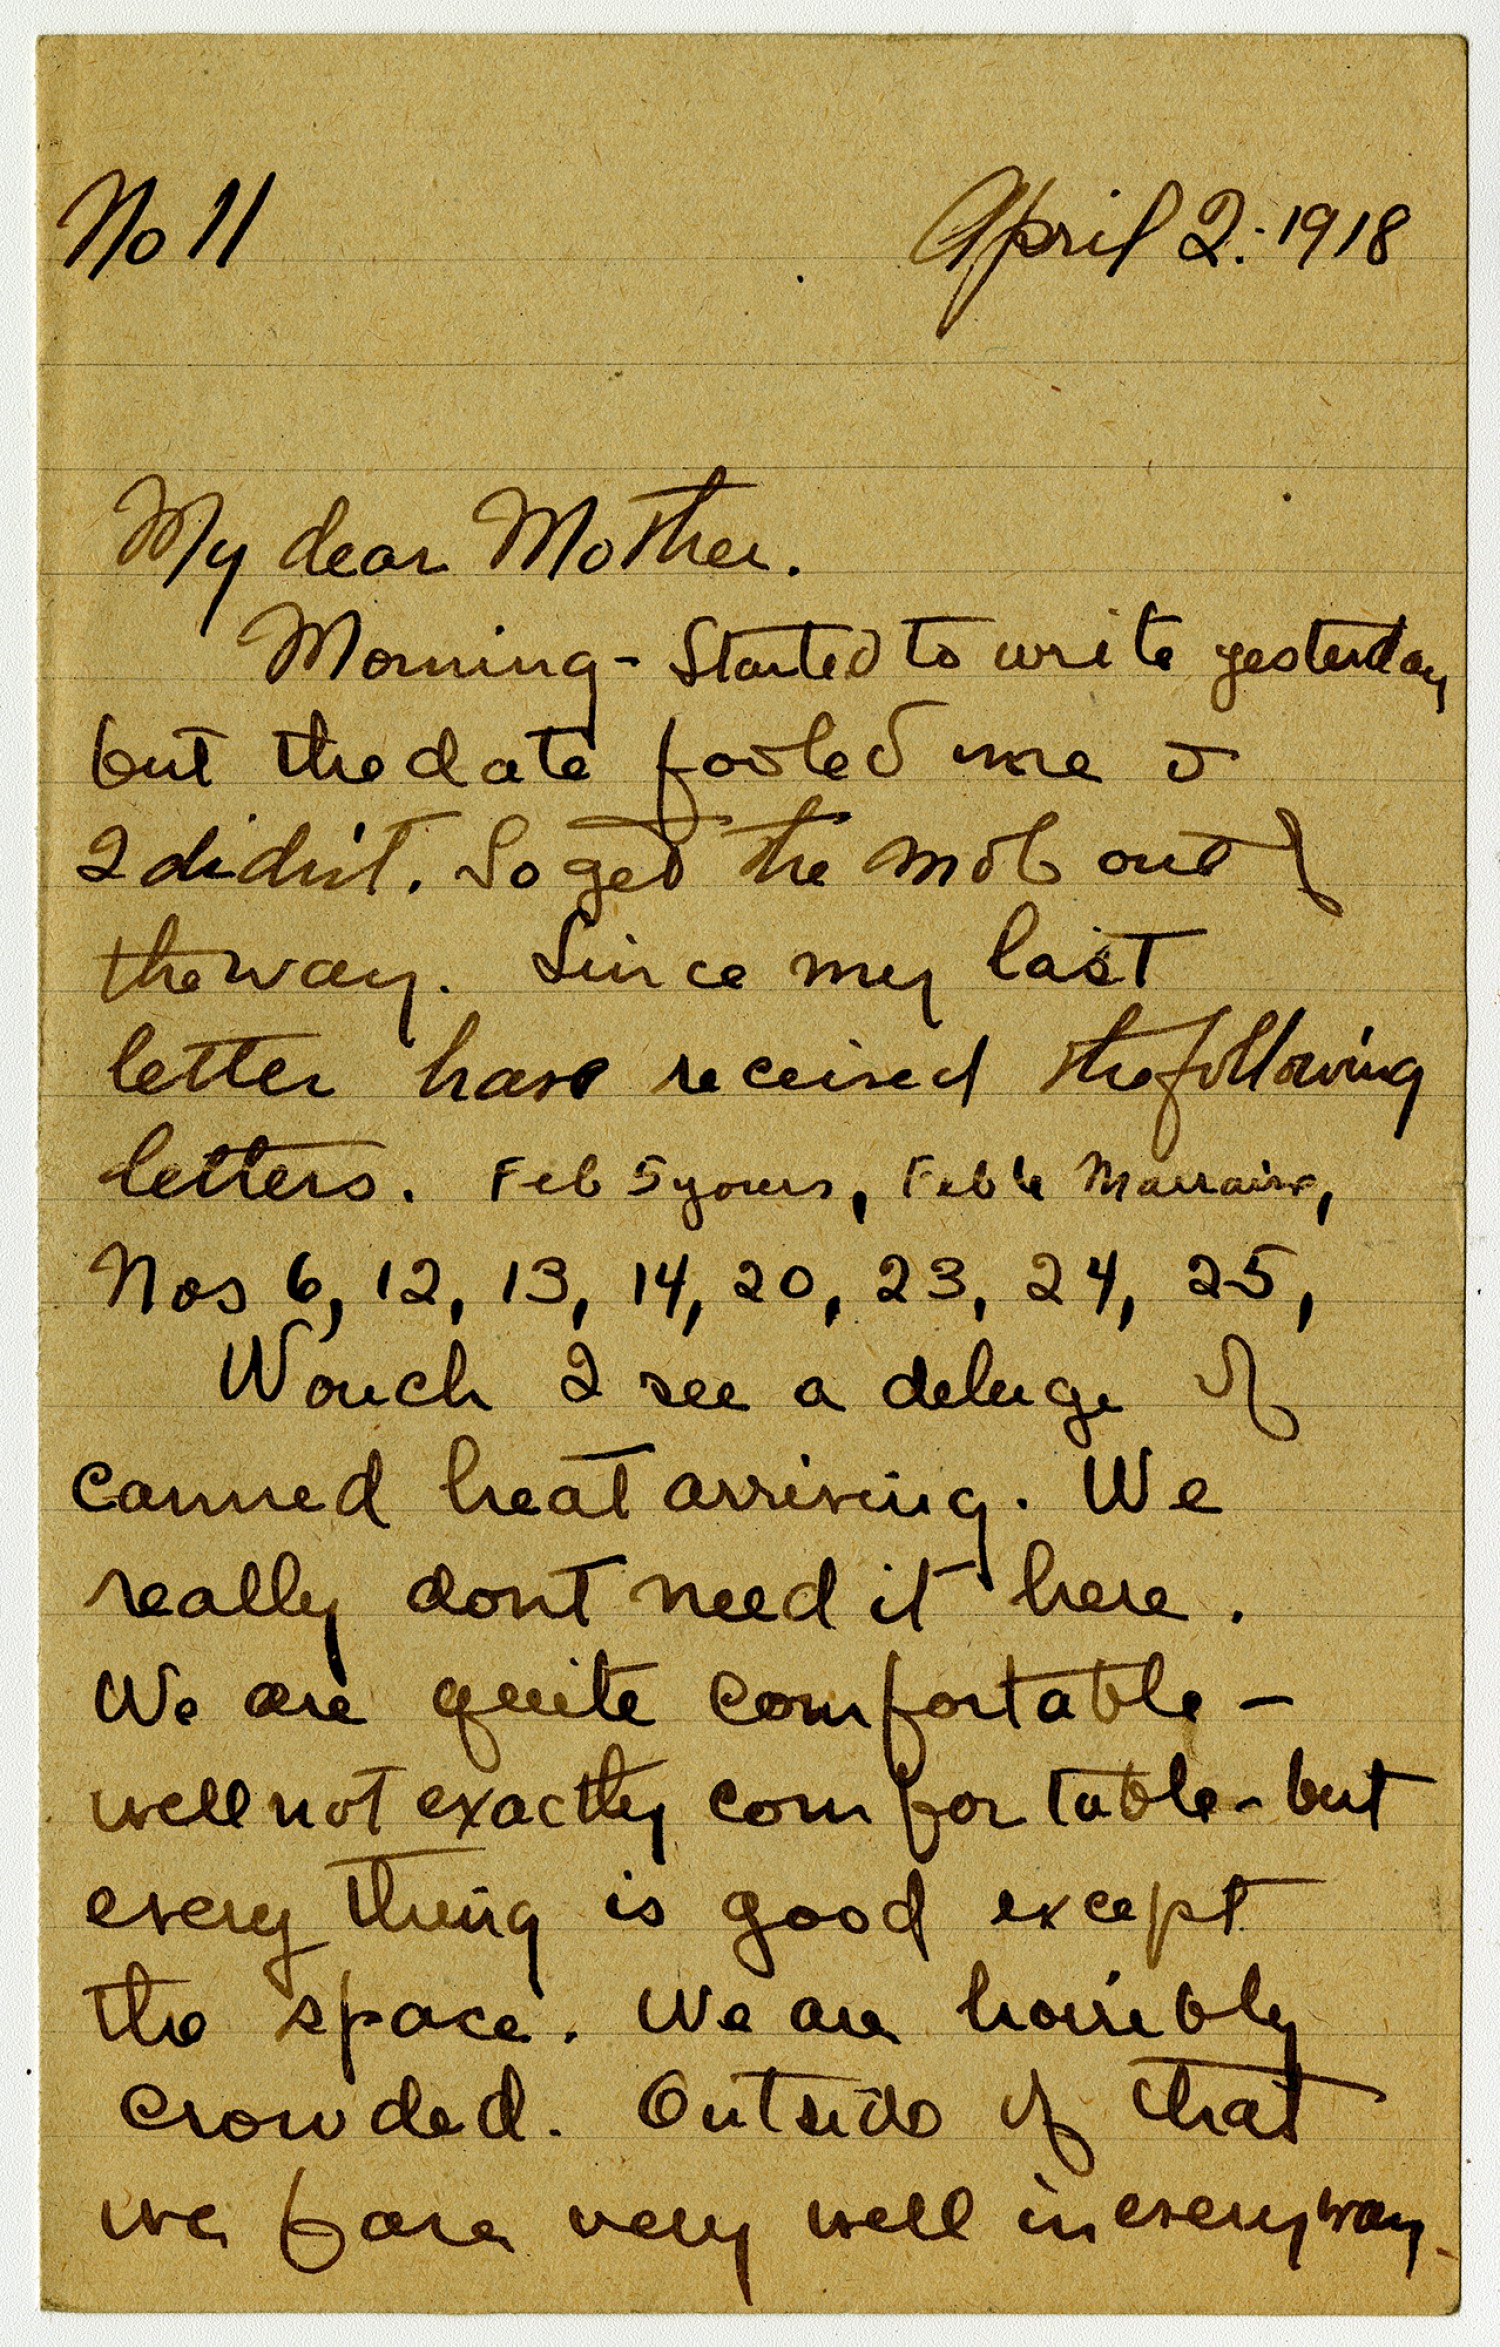 No 11 April 2. 1918
My dear Mother.
Morning - Started to write yesterday
but the date fooled me &
I didn't. So get the mob out of
the way. Since my last
letter have received the following
letters. Feb 5 yours, Feb Marraine,
Nos 6, 12, 13, 14, 20, 23, 24, 25,
Wouch I see a deluge of
canned heat arriving. We
really dont need it here.
We are quite comfortable -
well not exactly comfortable - but
every thing is good except
the space. We are horribly
crowded. Outside of that
we fare very well in everyway.